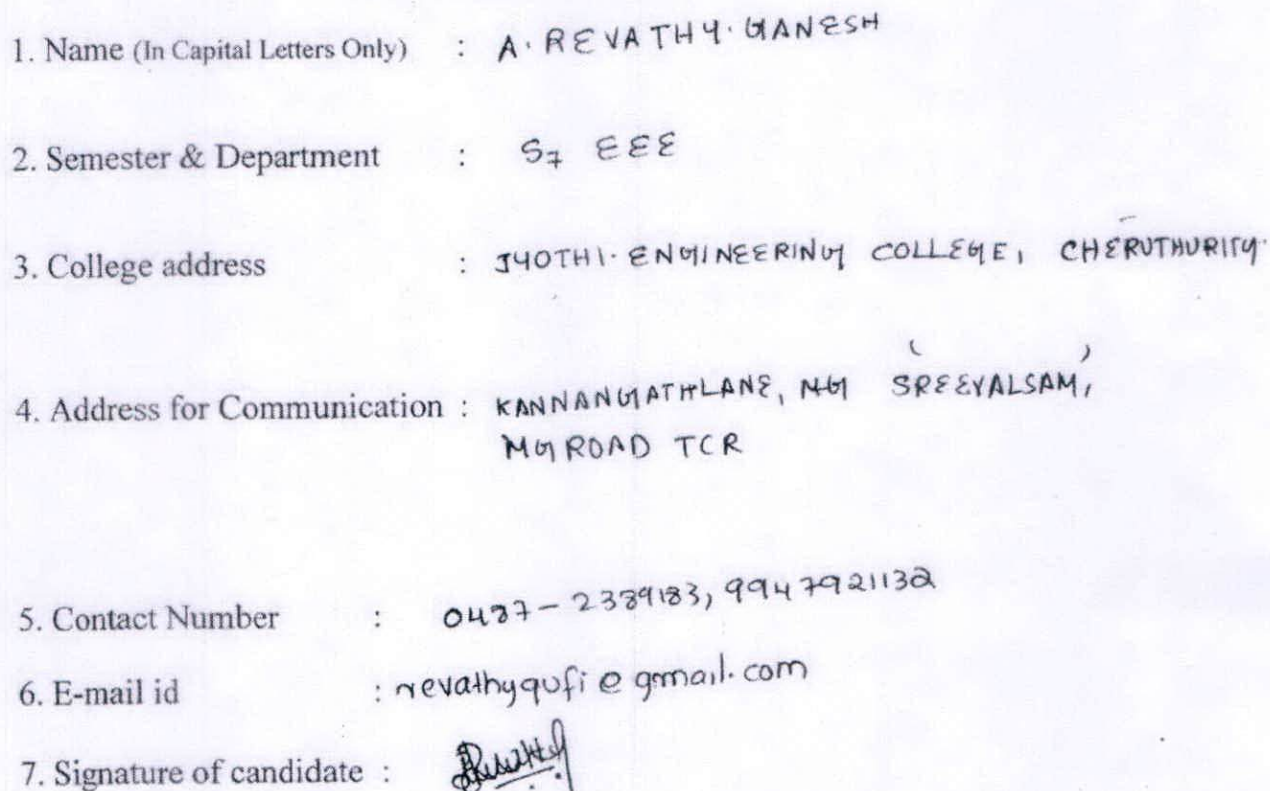 1. Name (In Capital Letters Only) : A. REVATHY. GANESH
2. Semester & Department : S7 EEE
3. College address : JYOTHI. ENGINEERING COLLEGE, CHERUTHURITY.
4. Address for Communication : KANNANGATHLANE, NG ( SREEVALSAM, )
MG ROAD TCR
5. Contact Number : 0487-2389183, 9947921132
6. E-mail id : revathyqufi@gmail.com
7. Signature of candidate :